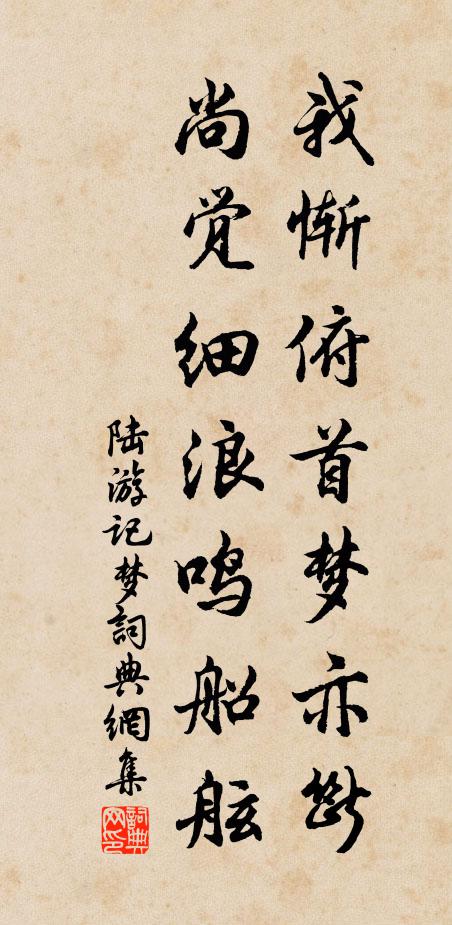 我惭俯首梦亦断
尚觉细浪鸣船舷
陆游记梦詞典網集
詞典网印